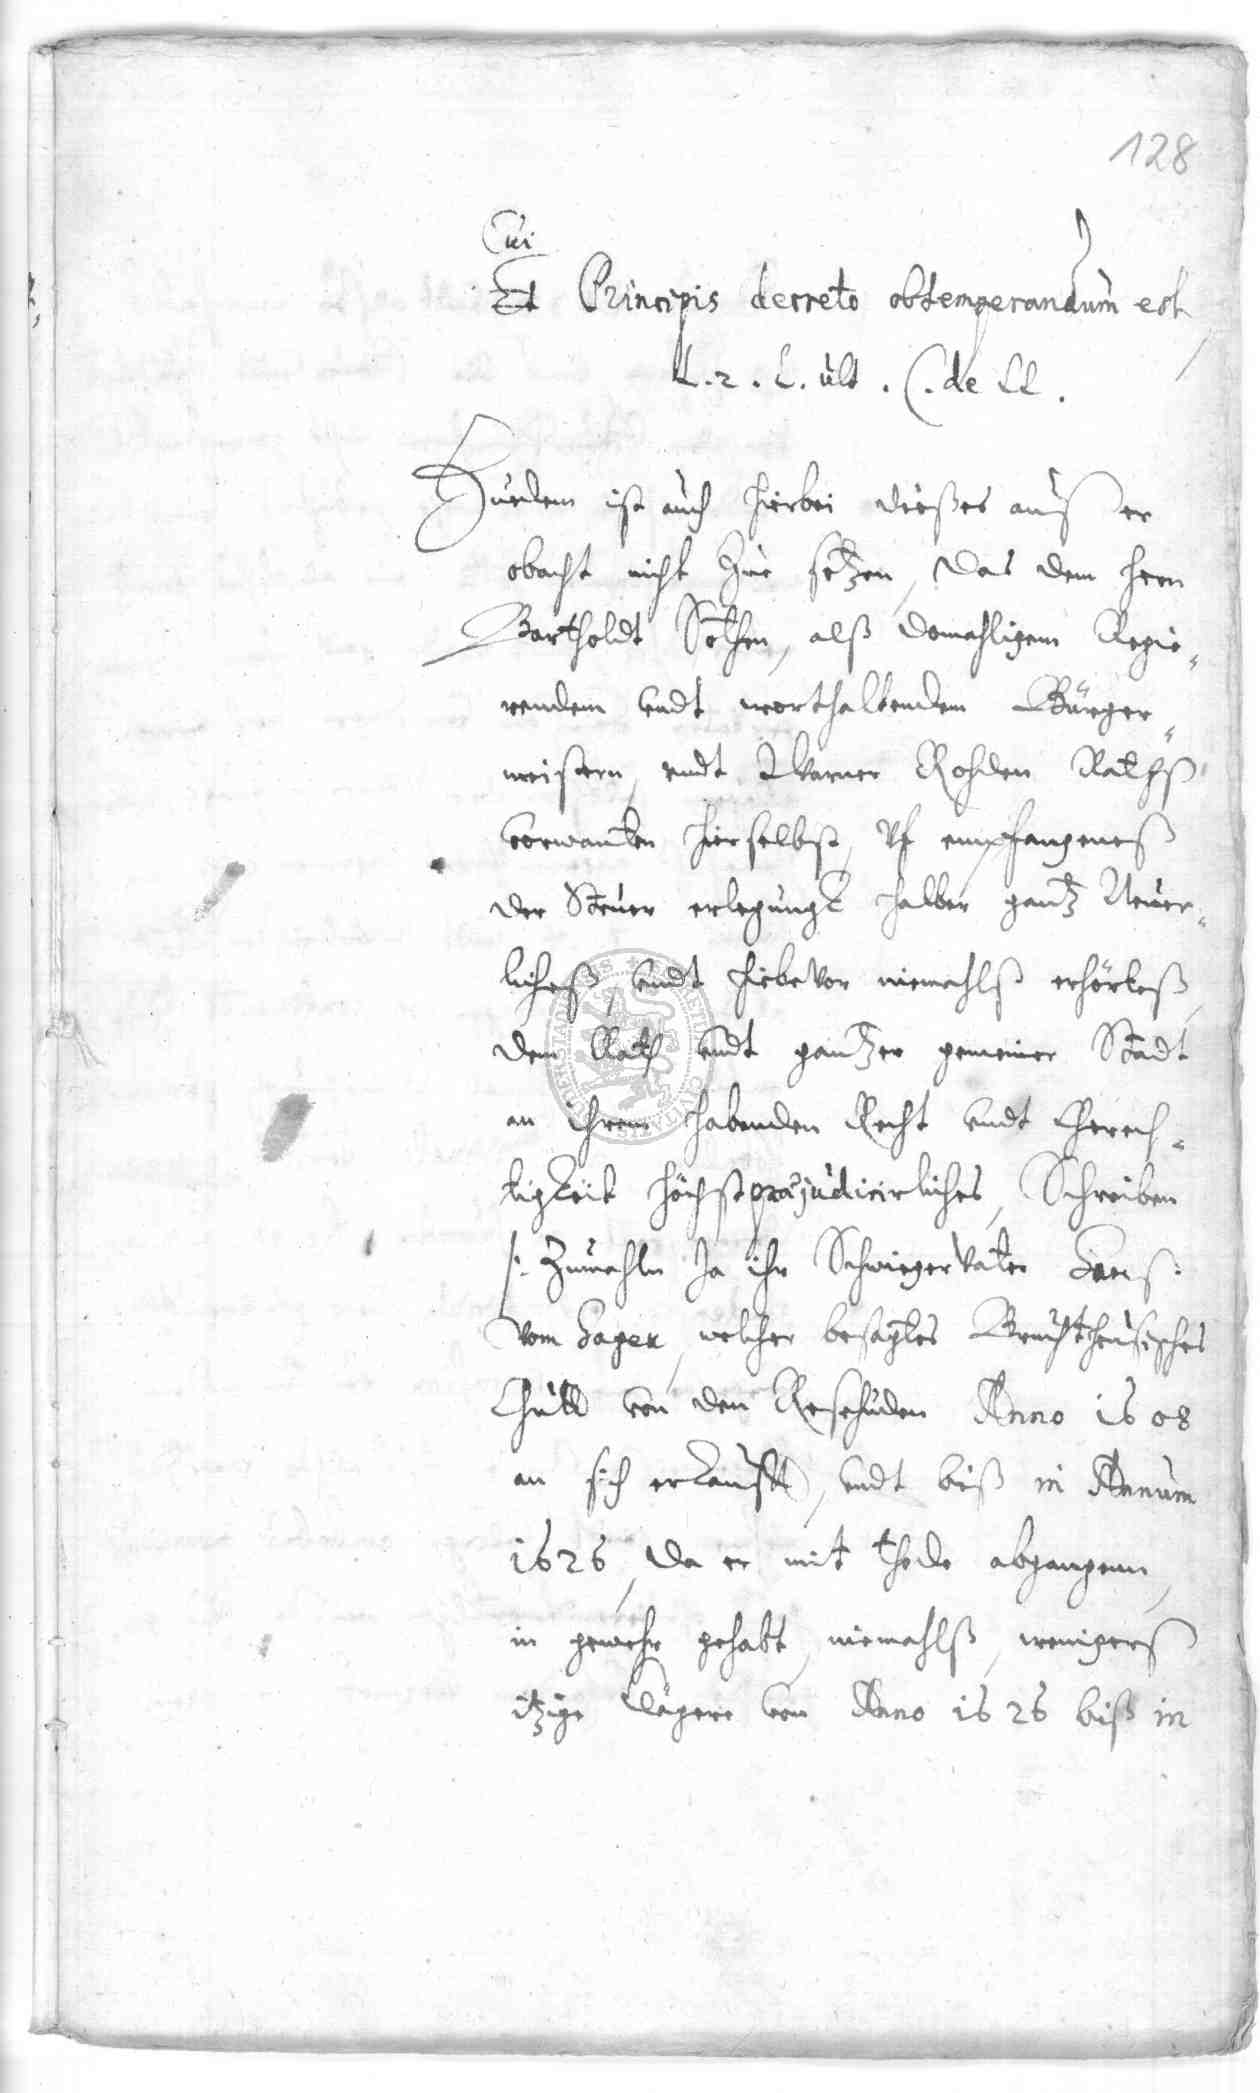 128
Cui
Et Principis decreto obtemperandum est,
L. 2. L. ult. C. de LL.
Zuedem ist auch hierbei dießes ausser
obacht nicht Zue setzen, das dem hern
Bartholdt Sothen, alß domahligem Regie-
rendem undt worthaltendem Bürger-
meistern, undt Warner Rohden Raths
verwanten hierselbst, Uf empfangeneß
der Steuer erlegung halber gantz Neuer-
licheß, undt hiebevor niemahlß erhörteß,
dem Rath undt gantzer gemeiner Stadt
an ihrem habenden Recht undt Gerech-
tigkeit höchstpraejudicirliches, Schreiben
/: Zumahln Ja ihr Schwiegervater
vom Sager, welcher besagtes
Guett von den Reschuden Anno 1608
an sich erkaufft, undt biß in Annum
1626, da er mit thode abgangenn,
in gewehr gehabt, niemahlß, wenigers
itzige Clägere von Anno 1626 biß in